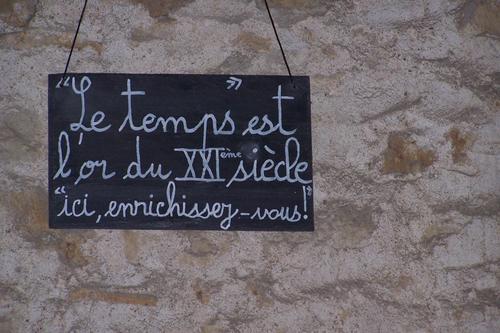 “Le temps est”
l'or du XXIème siècle
“ici, enrichissez-vous!”